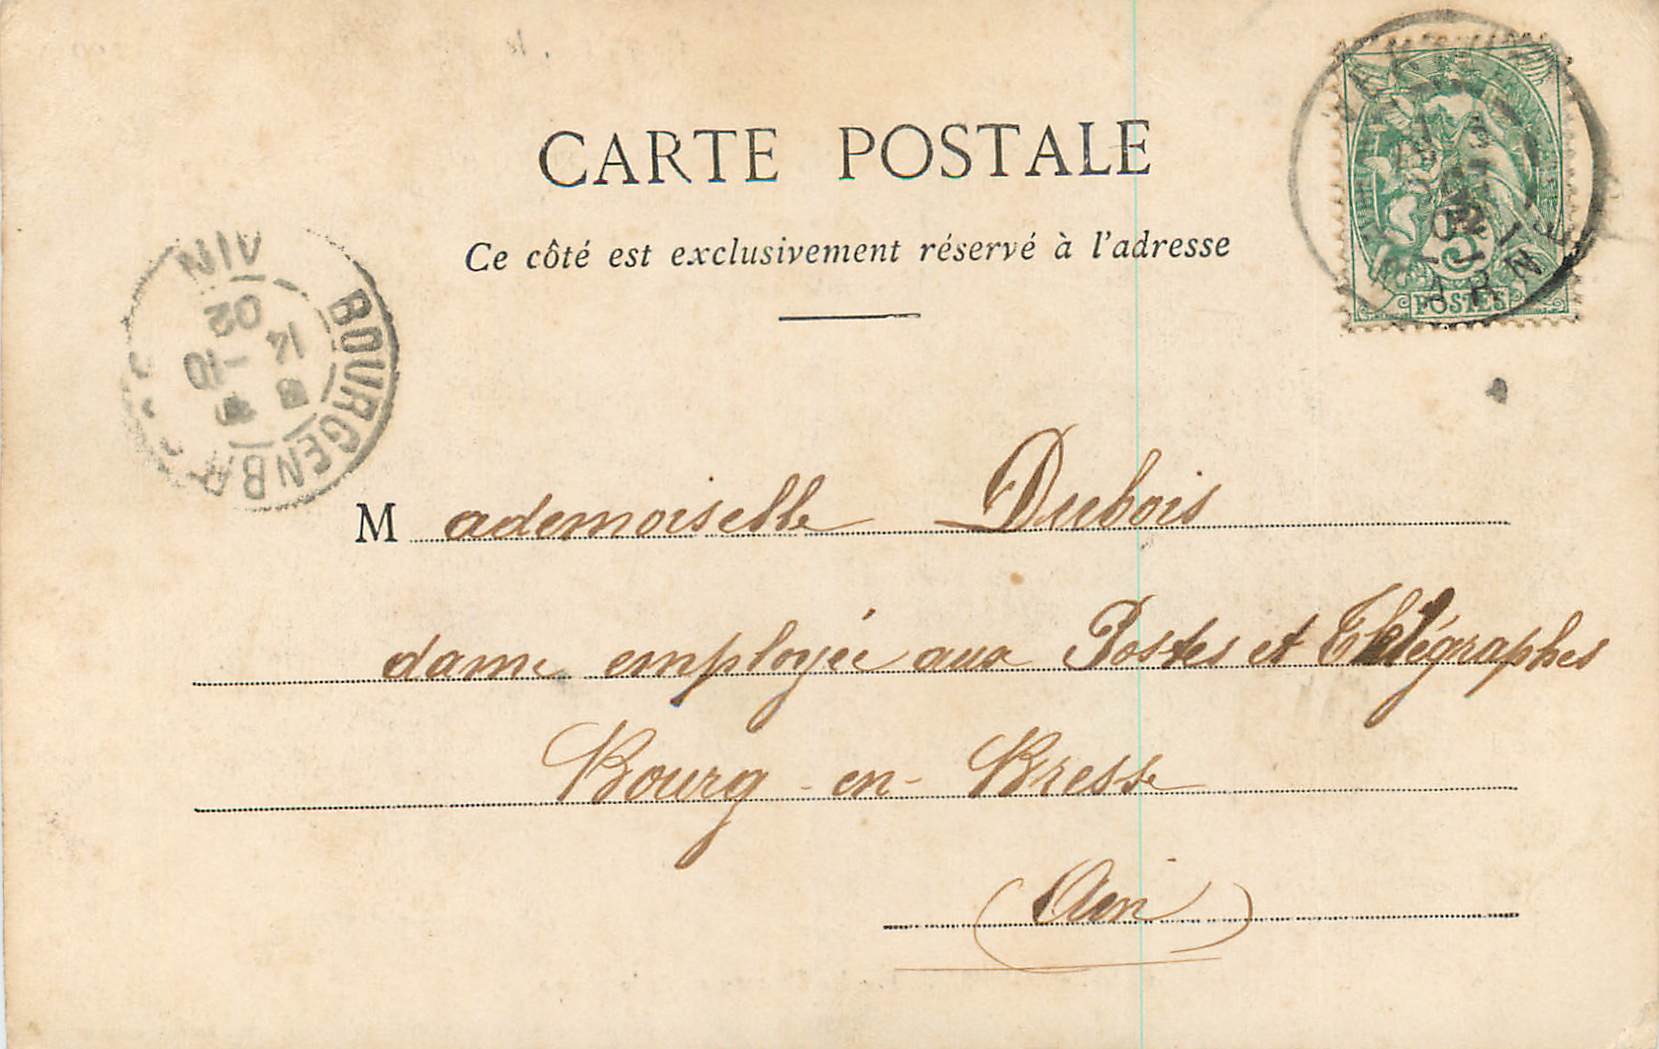 CARTE POSTALE
Ce côté est exclusivement réservé à l'adresse
POSTES
5
MARNE
BOURG EN BR
AIN
8
14 -10
02
Mademoiselle Dubois
dame employée aux Postes et Télégraphes
Bourg-en-Bresse
(Ain)